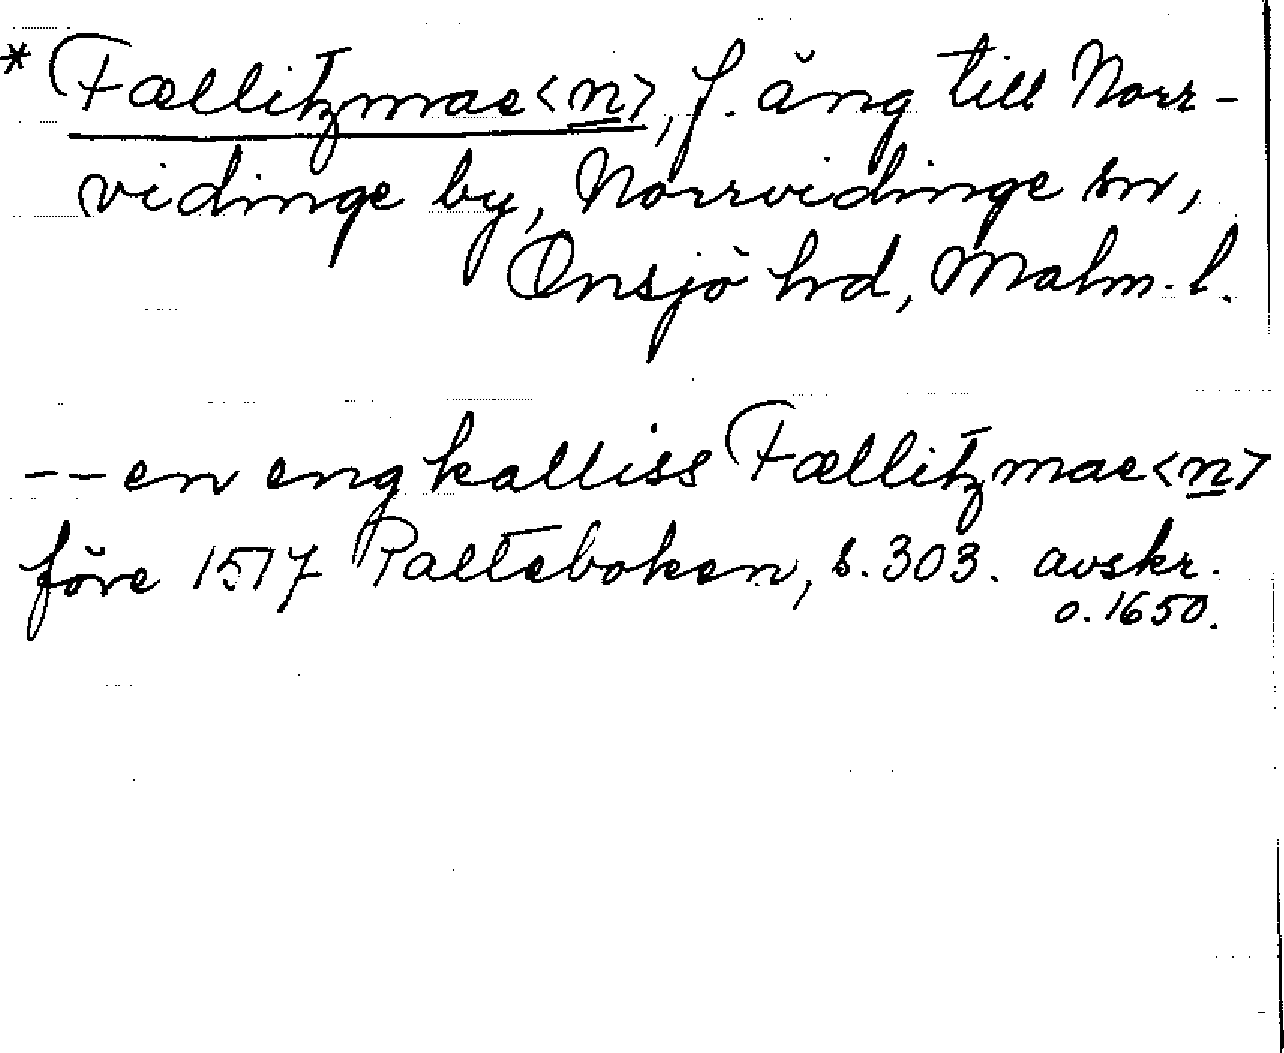 * Fællitzmae<n>, f. äng till Norr-
vidinge by, Norrvidinge sn,
Onsjö hrd, Malm. l.
--en eng kalliss Fællitzmae<n>
före 1517 Palteboken, s. 303. avskr.
o. 1650.